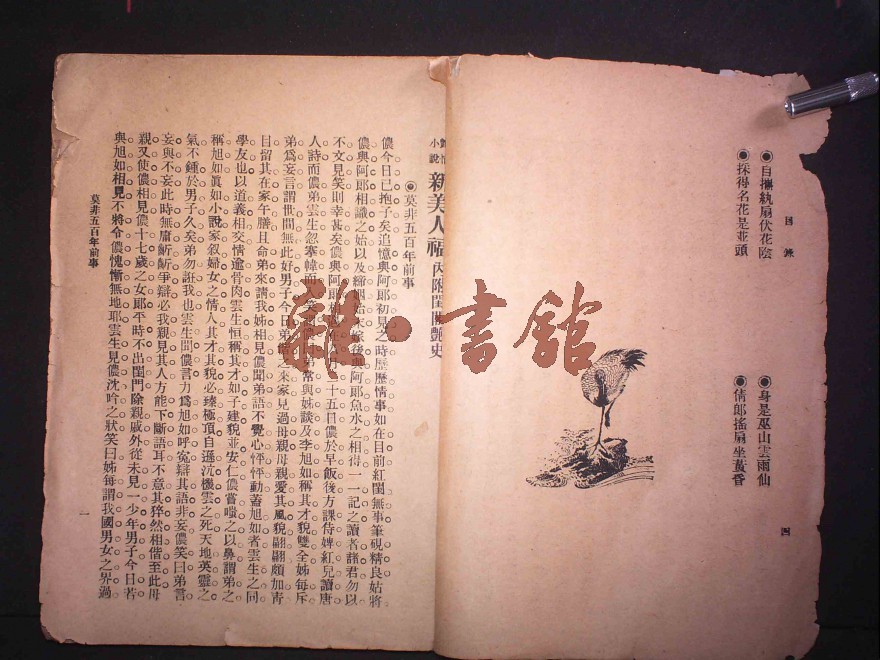 目錄
◉自攜紈扇伏花陰
◉身是巫山雲雨仙
◉採得名花是並頭
◉倩郎搖扇坐黃昏
四
小說
新美人福
內附閨閣艷史
◉莫非五百年前事
儂今日已抱子矣。追憶與阿郎初見之時。歷歷情事。如在目前。紅閨無事。筆硯精良。姑將
儂與阿郎相識之始。以及締姻始末。嫁後與阿郎魚水之相得。一一記之。讀者諸君。勿以
不文見笑則幸甚矣。儂與阿郎相二十五日。儂於早飯後。方課侍婢紅兒讀唐
人詩。而儂弟雲生忽搴幃而弟常與姊談及李旭如。稱其才貌雙全。姊每斥
弟爲妄言。謂世間無此好男子。今日弟偕之來家。見過母親。母親愛其風貌翩翩。頗加靑
目。留其在家午膳。且命弟來請我姊相見。儂聞弟語。不覺心怦怦動。蓋旭如者。雲生之同
學友也。以道義相交。情逾骨肉。雲生恒稱其才如子建。貌並安仁。儂嘗嗤之以鼻。謂弟之
稱旭如。眞如小說家叙婦女之情人。其才其貌必臻極頂。自遜沈機雲之死。天地英靈之
氣。不鍾於男子久矣。弟勿誑我也。雲生聞儂言。力爲旭如呼冤。辯其語非妄。儂笑曰。弟言
妄與不妄。此時無庸齗齗爭辯。必我親見其人。方能下斷語耳。不意其猝然相偕至此。母
親又使儂相見。儂十七歲之女郎。平時不出閨門。除親戚外。從未見一少年男子。今日若
與旭如相見。不將令儂愧慚無地耶。雲生見儂沈吟之狀。笑曰。姊每謂我國男女之界過
莫非五百年前事
一
雜·書館